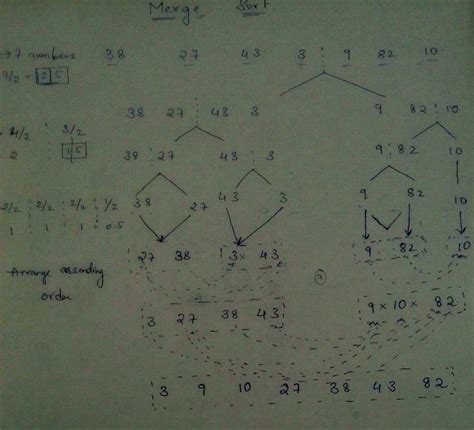 Merge Sort
→ 7 numbers 38 27 43 3 9 82 10
7/2 = 3 5
38 27 43 3 9 82 10
4/2 3/2
2 1.5
38 27 43 3 9 82 10
2/2 2/2 2/2 1/2 38 27 43 3 9 82 10
1 1 1 0.5
27 38 3 × 43 9 82 10
Arrange assending
order
3 27 38 43 9 × 10 × 82
3 9 10 27 38 43 82